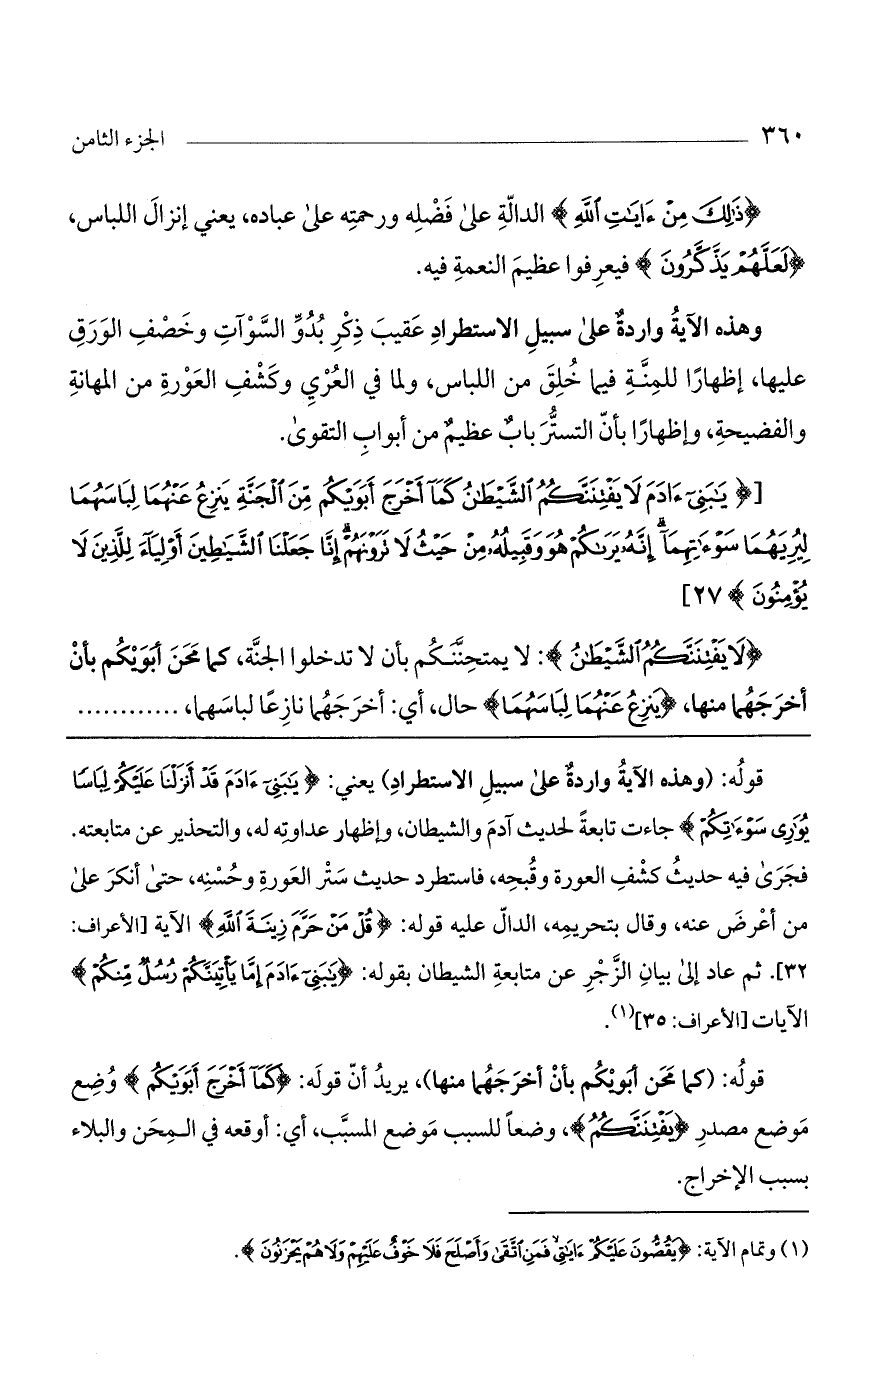 ٣٦٠ الجزء الثامن
﴿ذَٰلِكَ مِنْ ءَايَٰتِ ٱللَّهِ﴾ الدالّةِ علىٰ فَضْلِه ورحمتِه علىٰ عباده، يعني إنزالَ اللباس،
﴿لَعَلَّهُمْ يَذَّكَّرُونَ﴾ فيعرِفوا عظيمَ النعمةِ فيه.
وهذه الآيةُ واردةٌ علىٰ سبيلِ الاستطرادِ عَقيبَ ذِكْرِ بُدُوِّ السَّوْآتِ وخَصْفِ الوَرَقِ
عليها، إظهارًا للمِنَّةِ فيما خُلِقَ من اللباس، ولما في العُرْيِ وكَشْفِ العَوْرةِ من المهانةِ
والفضيحةِ، وإظهارًا بأنّ التستُّرَ بابٌ عظيمٌ من أبوابِ التقوىٰ.
[﴿يَٰبَنِىٓ ءَادَمَ لَا يَفْتِنَنَّكُمُ ٱلشَّيْطَٰنُ كَمَآ أَخْرَجَ أَبَوَيْكُم مِّنَ ٱلْجَنَّةِ يَنزِعُ عَنْهُمَا لِبَاسَهُمَا
لِيُرِيَهُمَا سَوْءَٰتِهِمَآ ۗ إِنَّهُۥ يَرَىٰكُمْ هُوَ وَقَبِيلُهُۥ مِنْ حَيْثُ لَا تَرَوْنَهُمْ ۗ إِنَّا جَعَلْنَا ٱلشَّيَٰطِينَ أَوْلِيَآءَ لِلَّذِينَ لَا
يُؤْمِنُونَ﴾ ٢٧]
﴿لَا يَفْتِنَنَّكُمُ ٱلشَّيْطَٰنُ﴾: لا يمتحِنَنَّكُم بأن لا تدخلوا الجنَّة، كما مَحَنَ أبوَيْكُم بأنْ
أخرَجَهُما منها، ﴿يَنزِعُ عَنْهُمَا لِبَاسَهُمَا﴾ حال، أي: أخرَجَهُما نازِعًا لباسَهما، ............
قولُه: (وهذه الآيةُ واردةٌ علىٰ سبيلِ الاستطرادِ) يعني: ﴿يَٰبَنِىٓ ءَادَمَ قَدْ أَنزَلْنَا عَلَيْكُمْ لِبَاسًا
يُوَٰرِى سَوْءَٰتِكُمْ﴾ جاءت تابعةً لحديث آدمَ والشيطان، وإظهار عداوتِه له، والتحذير عن متابعته.
فجَرَىٰ فيه حديثُ كشْفِ العورة وقُبحِه، فاستطرد حديث سَتْر العَورةِ وحُسْنِه، حتىٰ أنكرَ علىٰ
من أعْرضَ عنه، وقال بتحريمِه، الدالّ عليه قوله: ﴿قُلْ مَنْ حَرَّمَ زِينَةَ ٱللَّهِ﴾ الآية [الأعراف:
٣٢]. ثم عاد إلىٰ بيانِ الزَّجْرِ عن متابعةِ الشيطان بقوله: ﴿يَٰبَنِىٓ ءَادَمَ إِمَّا يَأْتِيَنَّكُمْ رُسُلٌ مِّنكُمْ﴾
الآيات [الأعراف: ٣٥](١).
قولُه: (كما مَحَن أبوَيْكُم بأنْ أخرجَهُما منها)، يريدُ أنّ قولَه: ﴿كَمَآ أَخْرَجَ أَبَوَيْكُم﴾ وُضِع
مَوضع مصدرِ ﴿يَفْتِنَنَّكُمُ﴾، وضعاً للسبب مَوضع المسبَّب، أي: أوقعه في المِحَن والبلاء
بسبب الإخراج.
(١) وتمام الآية: ﴿يَقُصُّونَ عَلَيْكُمْ ءَايَٰتِى ۙ فَمَنِ ٱتَّقَىٰ وَأَصْلَحَ فَلَا خَوْفٌ عَلَيْهِمْ وَلَا هُمْ يَحْزَنُونَ﴾.